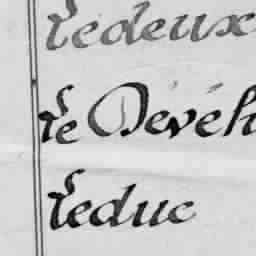 Ledeux
Le Devéh
Leduc